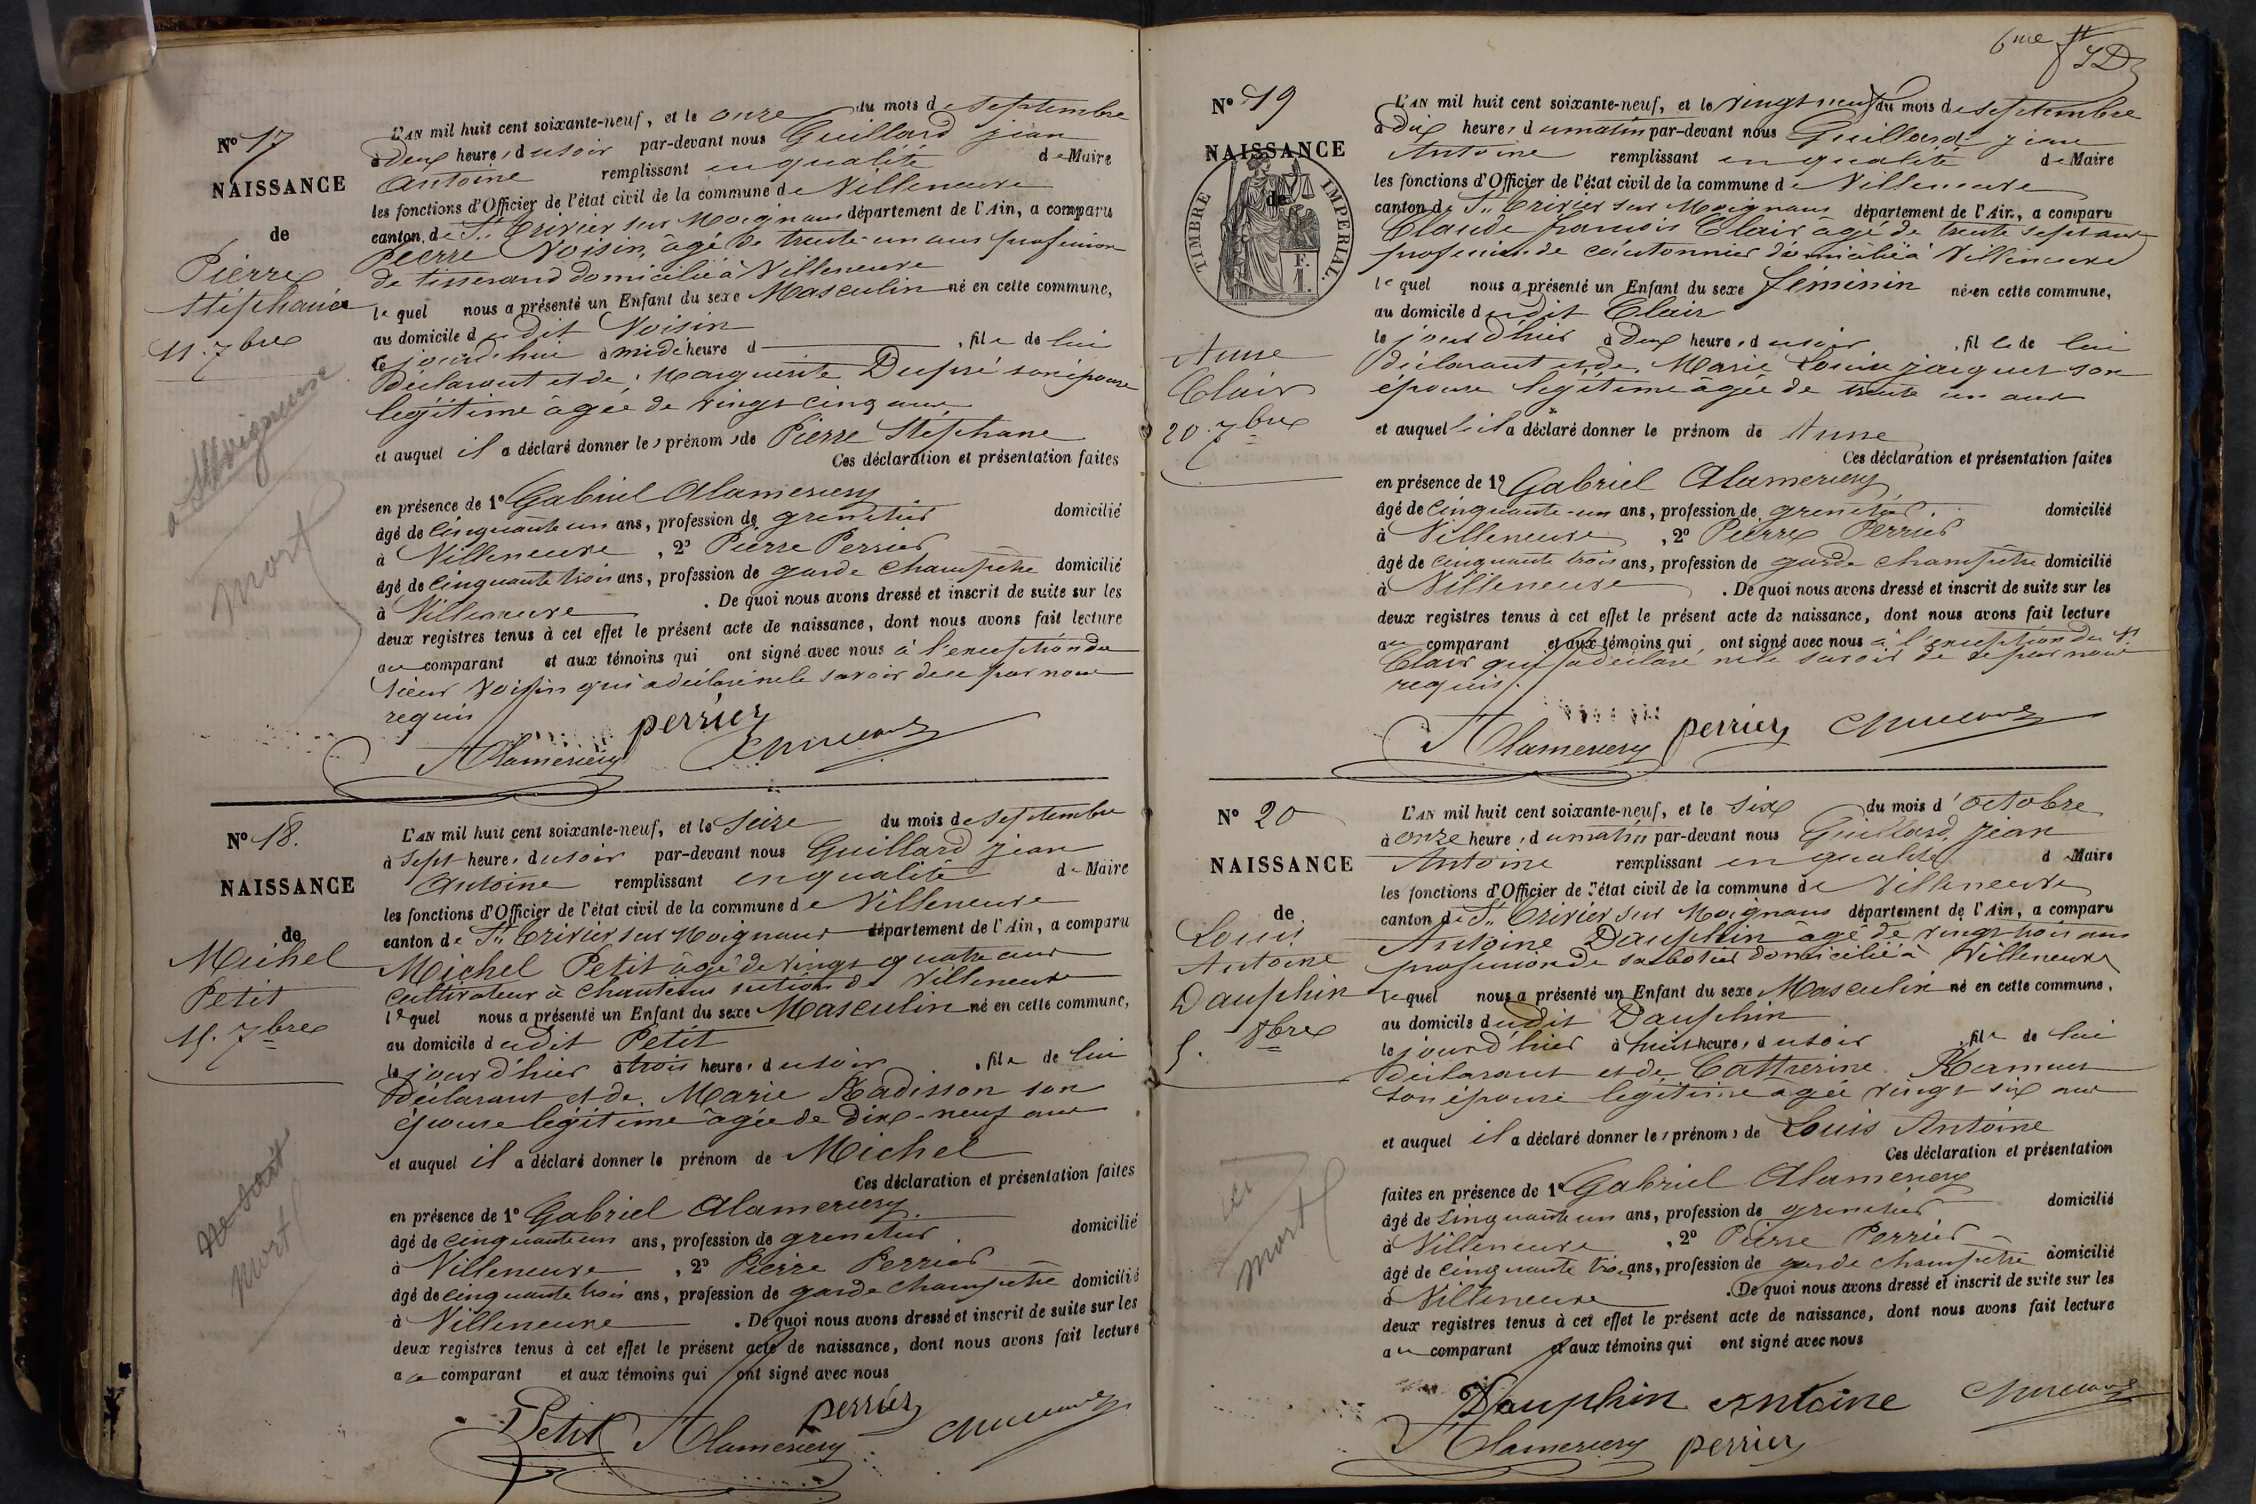 N° 17
NAISSANCE
de
Pierre
Stéphane
11. 7bre
mort
L'AN mil huit cent soixante-neuf, et le onze du mois de Septembre
à deux heures du soir par-devant nous Guillard jean
Antoine remplissant en qualité de Maire
les fonctions d'Officier de l'état civil de la commune de Villeneuve
canton de St. Trivier sur Moignans département de l'Ain, a comparu
Pierre Voisin, âgé de trente-un ans profession
de tisserand domicilié à Villeneuve
lequel nous a présenté un Enfant du sexe Masculin né en cette commune,
au domicile dudit Voisin
ce jourd'hui à midi heure d , fils de lui
déclarant et de Marguerite Dupré son épouse
légitime âgée de vingt cinq ans
et auquel il a déclaré donner les prénoms de Pierre Stéphane
Ces déclaration et présentation faites
en présence de 1° Gabriel Alamercery
âgé de cinquante un ans, profession de grenetier domicilié
à Villeneuve , 2° Pierre Perrier
âgé de cinquante trois ans, profession de garde champêtre domicilié
à Villeneuve . De quoi nous avons dressé et inscrit de suite sur les
deux registres tenus à cet effet le présent acte de naissance, dont nous avons fait lecture
au comparant et aux témoins qui ont signé avec nous à l'exception du
sieur Voisin qui a déclaré ne le savoir de ce par nous
requis
perrier
Alamercery
N° 18.
NAISSANCE
de
Michel
Petit
15. 7bre
mort
L'AN mil huit cent soixante-neuf, et le Seize du mois de Septembre
à sept heures du soir par-devant nous Guillard jean
Antoine remplissant en qualité de Maire
les fonctions d'Officier de l'état civil de la commune de Villeneuve
canton de St. Trivier sur Moignans département de l'Ain, a comparu
Michel Petit âgé de vingt quatre ans
cultivateur à Chanteins section de Villeneuve
lequel nous a présenté un Enfant du sexe Masculin né en cette commune,
au domicile dudit Petit
le jour d'hier à trois heures du soir , fils de lui
déclarant et de Marie Radisson son
épouse légitime âgée de Dix-neuf ans
et auquel il a déclaré donner le prénom de Michel
Ces déclaration et présentation faites
en présence de 1° Gabriel Alamercery
âgé de cinquante un ans, profession de grenetier domicilié
à Villeneuve , 2° Pierre Perrier
âgé de cinquante trois ans, profession de garde champêtre domicilié
à Villeneuve . De quoi nous avons dressé et inscrit de suite sur les
deux registres tenus à cet effet le présent acte de naissance, dont nous avons fait lecture
au comparant et aux témoins qui ont signé avec nous
perrier
Petit Alamercery
6me
N° 19
NAISSANCE
de
TIMBRE IMPERIAL.
F.
1.
Anne
Clair
20. 7bre
L'AN mil huit cent soixante-neuf, et le vingt neuf du mois de septembre
à dix heures du matin par-devant nous Guillard jean
Antoine remplissant en qualité de Maire
les fonctions d'Officier de l'état civil de la commune de Villeneuve
canton de St. Trivier sur Moignans département de l'Ain, a comparu
Claude françois Clair âgé de trente sept ans
profession de cantonnier domicilié à Villeneuve
lequel nous a présenté un Enfant du sexe féminin né en cette commune,
au domicile dudit Clair
le jour d'hier à Deux heures du soir , fille de lui
déclarant et de Marie Louise jacquet son
épouse légitime âgée de trente un ans
et auquel il a déclaré donner le prénom de Anne
Ces déclaration et présentation faites
en présence de 1° Gabriel Alamercery
âgé de cinquante-un ans, profession de grenetier domicilié
à Villeneuve , 2° Pierre Perrier
âgé de cinquante trois ans, profession de garde champêtre domicilié
à Villeneuve . De quoi nous avons dressé et inscrit de suite sur les
deux registres tenus à cet effet le présent acte de naissance, dont nous avons fait lecture
au comparant et aux témoins qui ont signé avec nous à l'exception du Sr
Clair qui a déclaré ne le savoir de ce par nous
requis.
Alamercery perrier
N° 20
NAISSANCE
de
Louis
Antoine
Dauphin
5. 8bre
mort
L'AN mil huit cent soixante-neuf, et le Six du mois d'octobre
à onze heures du matin par-devant nous Guillard jean
Antoine remplissant en qualité d Maire
les fonctions d'Officier de l'état civil de la commune de Villeneuve
canton de St. Trivier sur Moignans département de l'Ain, a comparu
Antoine Dauphin âgé de vingt trois ans
profession de sabotier domicilié à Villeneuve
lequel nous a présenté un Enfant du sexe Masculin né en cette commune,
au domicile dudit Dauphin
le jour d'hier à huit heures du soir , fils de lui
déclarant et de Cattherine
son épouse légitime âgée vingt six ans
et auquel il a déclaré donner les prénoms de Louis Antoine
Ces déclaration et présentation
faites en présence de 1° Gabriel Alamercery
âgé de cinquante un ans, profession de grenetier domicilié
à Villeneuve , 2° Pierre Perrier
âgé de cinquante trois ans, profession de garde champêtre domicilié
à Villeneuve . De quoi nous avons dressé et inscrit de suite sur les
deux registres tenus à cet effet le présent acte de naissance, dont nous avons fait lecture
au comparant et aux témoins qui ont signé avec nous
Dauphin Antoine
Alamercery perrier